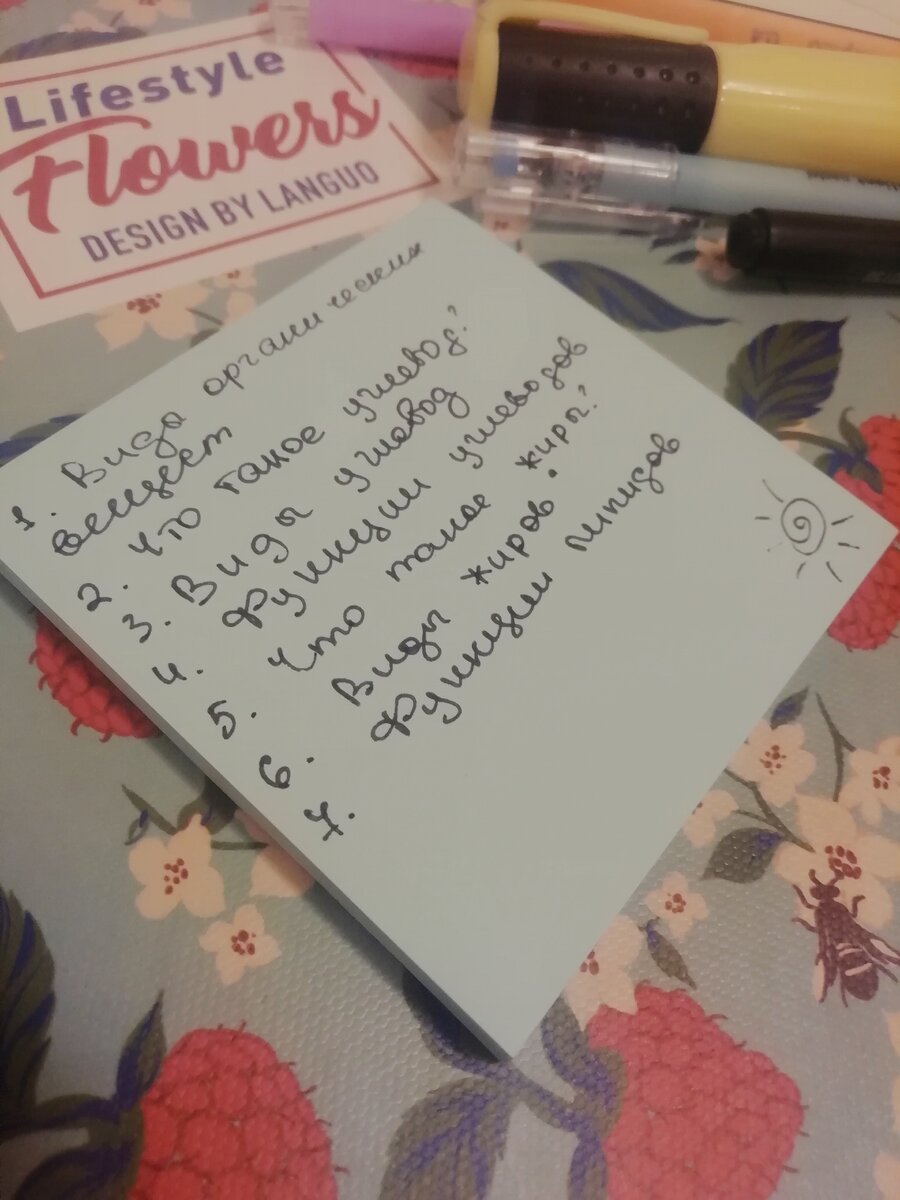 Lifestyle
Flowers
DESIGN BY LANGUO
1. Виды органических
веществ
2. Что такое углевод?
3. Виды углевод
4. Функции углеводов
5. Что такое жиры?
6. Виды жиров.
7. Функции липидов